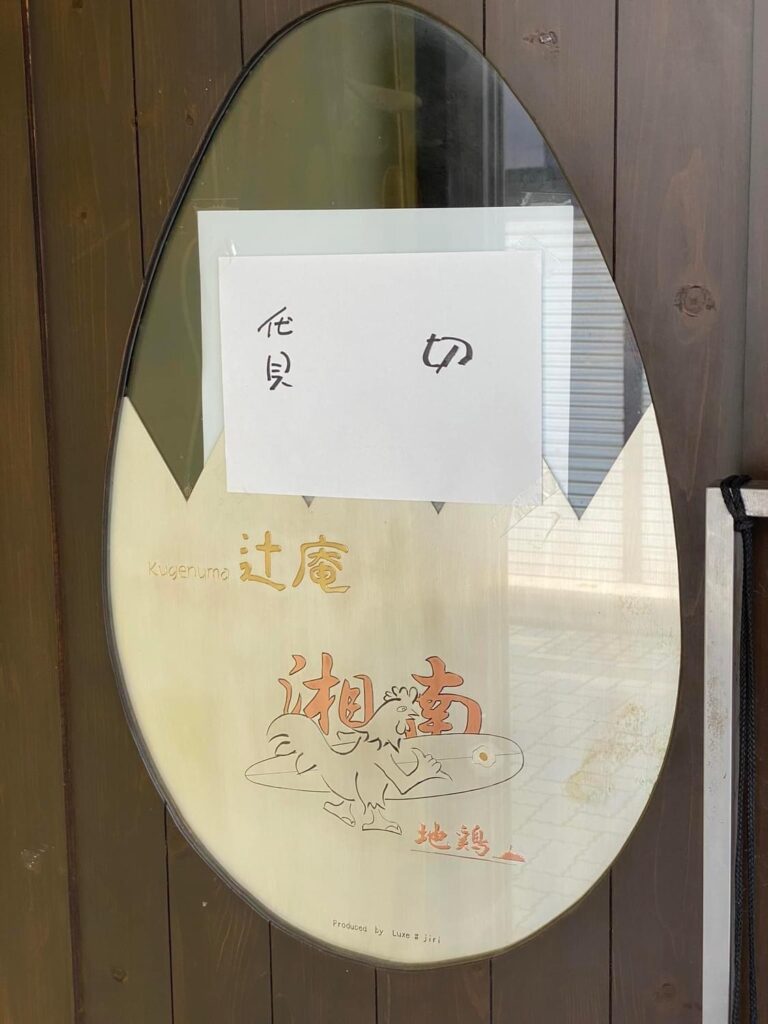 貸 切
Kugenuma 辻庵
湘南
地鶏
Produced by Luxe # jiri